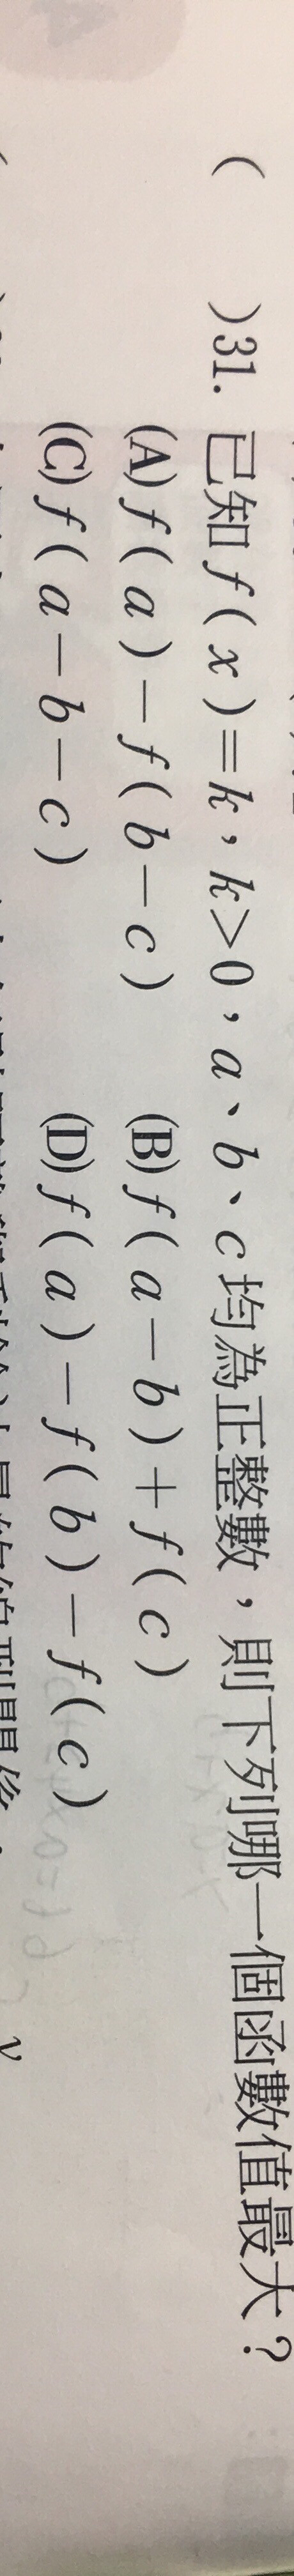 (　　)31. 已知f(x)=k,k>0,a、b、c均為正整數,則下列哪一個函數值最大?
(A)f(a)-f(b-c)　(B)f(a-b)+f(c)
(C)f(a-b-c)　(D)f(a)-f(b)-f(c)